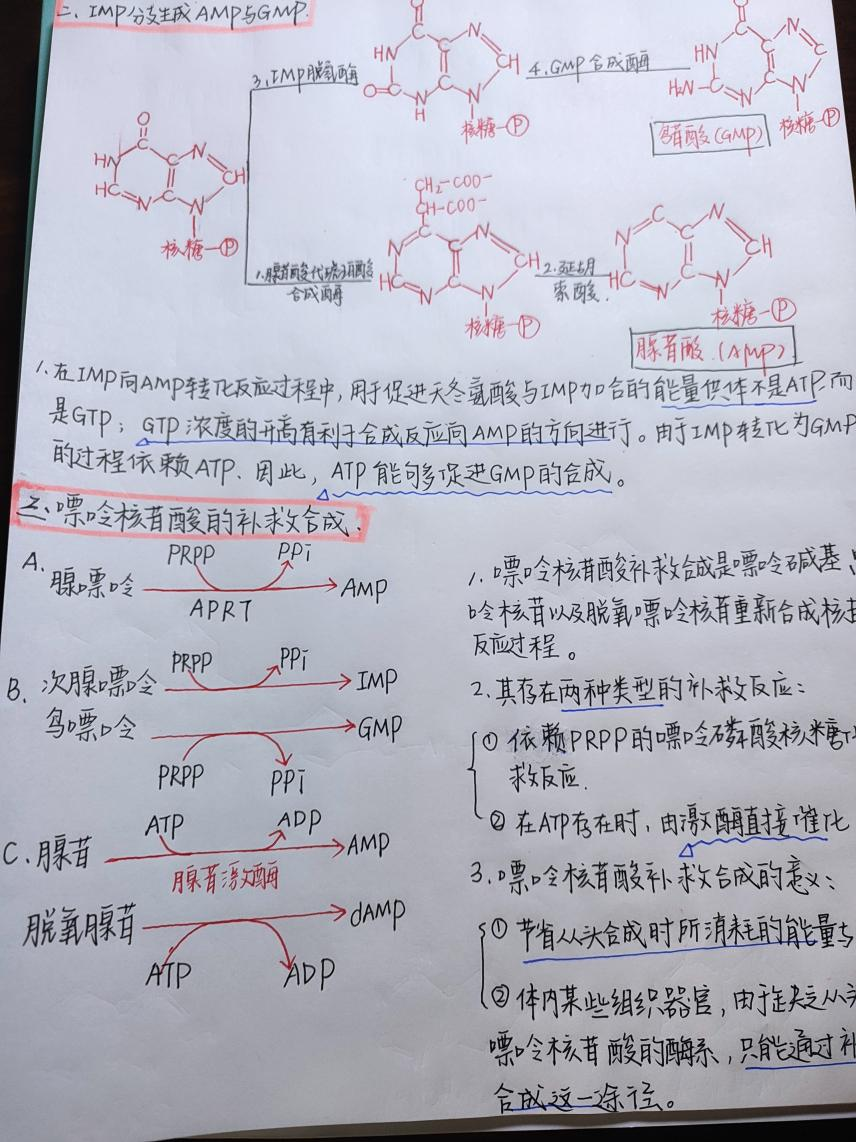 二、IMP分支生成AMP与GMP.
3.IMP脱氢酶
4.GMP合成酶
O
HN
N
CH
O
C
N
H
N
核糖—P
O
HN
H₂N
C
N
N
N
核糖—P
鸟苷酸(GMP)
O
HN
C
N
CH
HC
N
C
N
核糖—P
CH₂-COO⁻
CH-COO⁻
N
C
N
CH
HC
N
C
N
核糖—P
1.腺苷酸代琥珀酸
合成酶
2.延胡
索酸.
N
C
N
CH
HC
N
C
N
核糖—P
腺苷酸.(AMP)
1.在IMP向AMP转化反应过程中,用于促进天冬氨酸与IMP加合的能量供体不是ATP.而
是GTP; GTP浓度的升高有利于合成反应向AMP的方向进行。由于IMP转化为GMP
的过程依赖ATP.因此, ATP能够多促进GMP的合成。
三、嘌呤核苷酸的补救合成.
A.
腺嘌呤
PRPP
PPi
APRT
AMP
B.
次腺嘌呤
PRPP
PPi
IMP
鸟嘌呤
PRPP
PPi
GMP
C.腺苷
ATP
ADP
腺苷激酶
AMP
脱氧腺苷
ATP
ADP
dAMP
1.嘌呤核苷酸补救合成是嘌呤碱基、
呤核苷以及脱氧嘌呤核苷重新合成核苷
反应过程。
2.其存在两种类型的补救反应:
① 依赖PRPP的嘌呤磷酸核糖
救反应.
② 在ATP存在时,由激酶直接催化
3.嘌呤核苷酸补救合成的意义:
① 节省从头合成时所消耗的能量与
② 体内某些组织器官,由于缺乏从头
嘌呤核苷酸的酶系,只能通过补
合成这一途径。